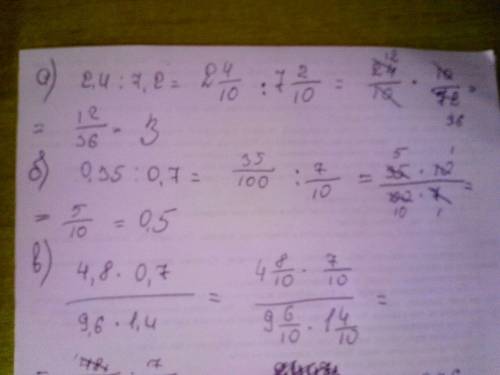 а) 2,4 : 7,2 = 2 4/10 : 7 2/10 = 24/10 · 10/72 =
= 12/36 = 3
б) 0,35 : 0,7 = 35/100 : 7/10 = 35 · 10/100 · 7 =
= 5/10 = 0,5
в) 4,8 · 0,7/9,6 · 1,4 = 4 8/10 · 7/10/9 6/10 · 1 4/10 =